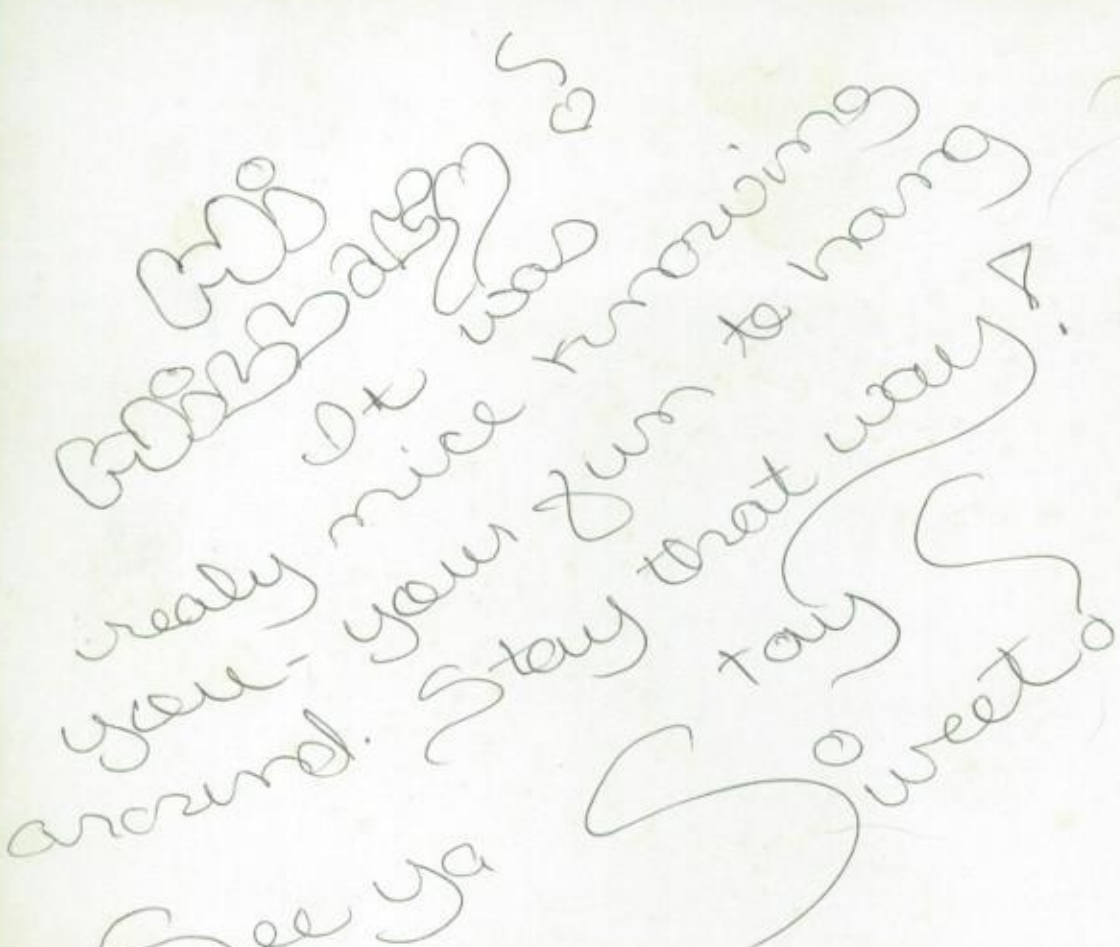 Hi
It was
realy nice knowing
you- your fun to hang
around. Stay that way!
Stay
Sweet!
See ya